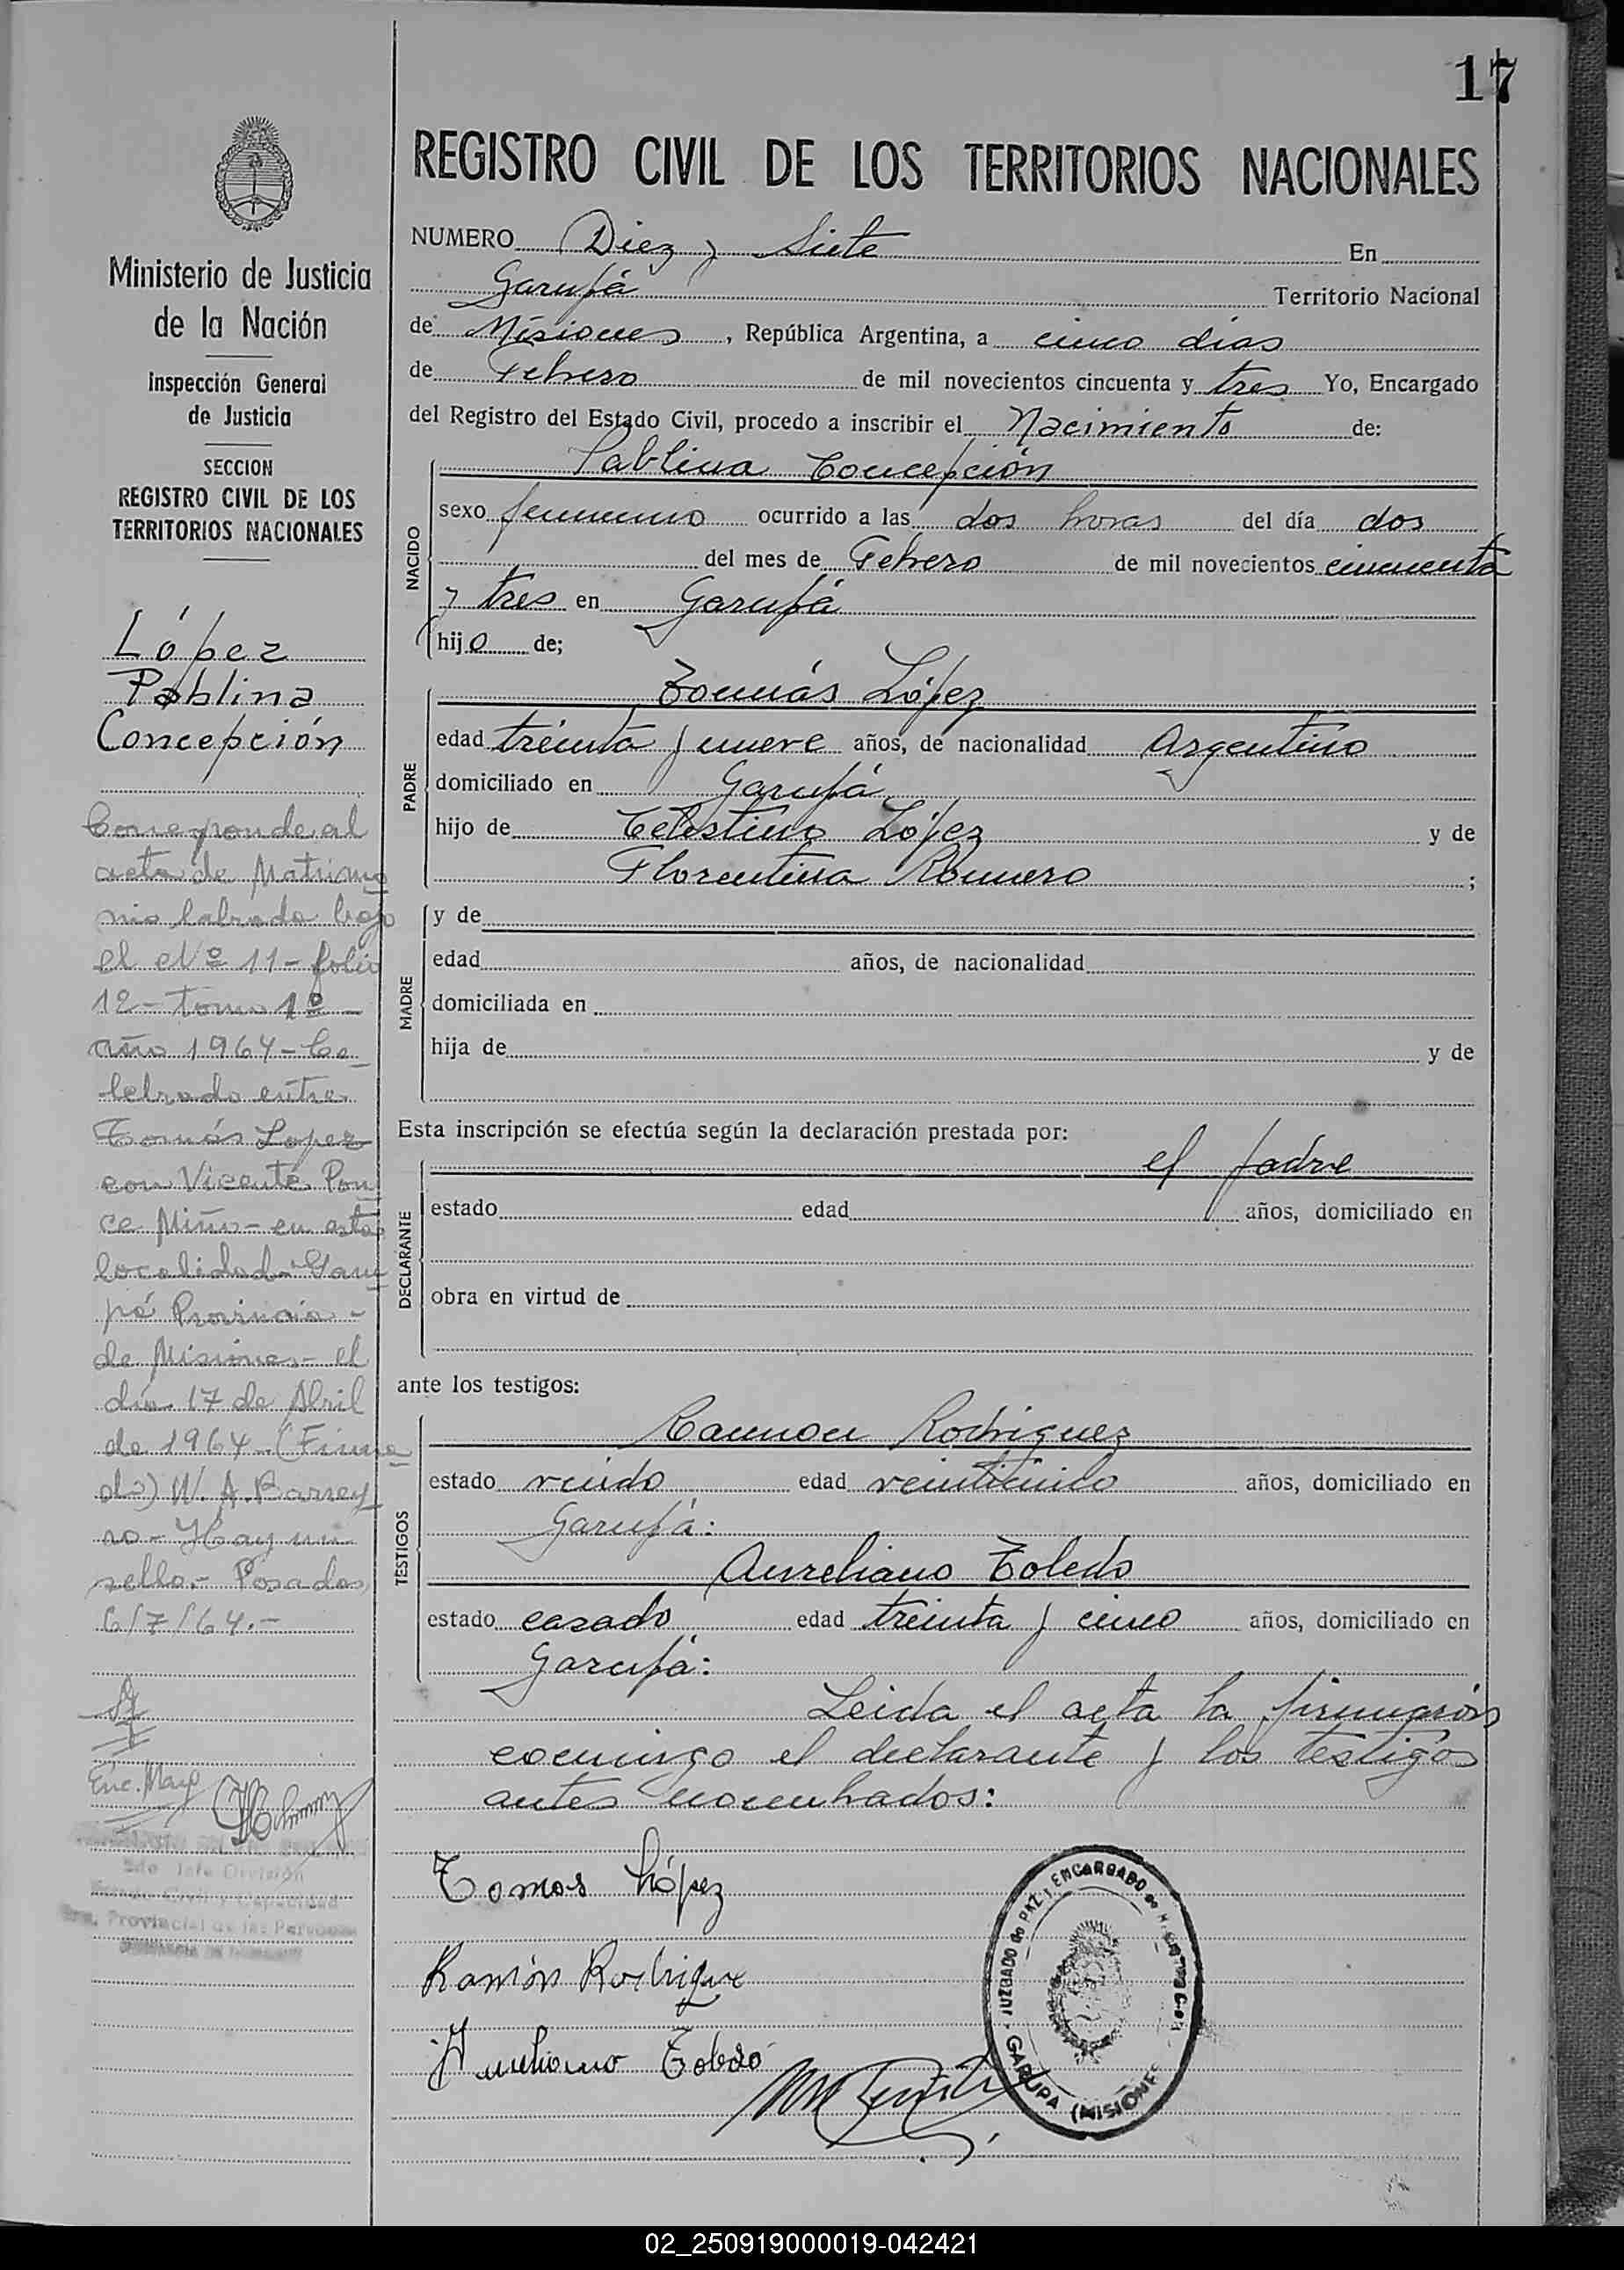 17
REGISTRO CIVIL DE LOS TERRITORIOS NACIONALES
NUMERO Diez y Siete En
Garupá Territorio Nacional
de Misiones, República Argentina, a cinco dias
de Febrero de mil novecientos cincuenta y tres Yo, Encargado
del Registro del Estado Civil, procedo a inscribir el Nacimiento de:
NACIDO
Pablina Concepción
sexo femenino ocurrido a las dos horas del día dos
del mes de Febrero de mil novecientos cincuenta
y tres en Garupá
hijo de;
PADRE
Tomás López
edad treinta y nueve años, de nacionalidad Argentino
domiciliado en Garupá
hijo de Celestino López y de
Florentina Romero ;
MADRE
y de
edad años, de nacionalidad
domiciliada en
hija de y de
Esta inscripción se efectúa según la declaración prestada por:
DECLARANTE
el padre
estado edad años, domiciliado en
obra en virtud de
ante los testigos:
TESTIGOS
Ramón Rodriguez
estado viudo edad años, domiciliado en
Garupá:
Aureliano Toledo
estado casado edad treinta y cinco años, domiciliado en
Garupá:
Leida el acta la firmarón
conmigo el declarante y los testigos
antes nombrados:
Tomas López
Ramón Rodrigue
Aureliano Toledo
JUZGADO DE PAZ Y ENCARGADO DE
GARUPA (MISIONES
Ministerio de Justicia
de la Nación
Inspección General
de Justicia
SECCION
REGISTRO CIVIL DE LOS
TERRITORIOS NACIONALES
López
Pablina
Concepción
Corresponde al
acta de Matrimo
nio labrada bajo
el Nº 11- folio
12- tomo 1º -
año 1964- Ce
lebrado entre
Tomás Lopez
con Vicenta Pon
ce Miño- en esta
localidad- Garu
pá Provincia -
de Misiones- el
día 17 de Abril
de 1964- (Firma
do) W. A. Barrey
ro- Hay un
sello.- Posadas
6/7/64.-
Enc. May
2do Jefe División
Estado Civil y Capacidad
Provincial de las Personas
02_250919000019-042421